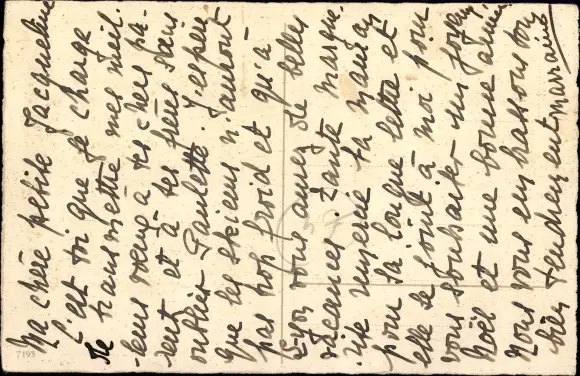 Ma chère petite Jacqueline
C'est toi que je charge
de transmettre mes meil-
leurs vœux à tes chers pa-
rents et à tes frères sans
oublier Paulette. J'espère
que les skieurs n'auront
pas trop froid et qu'à
Lyon vous aurez de belles
vacances. Tante Margue-
rite remercie ta maman
pour sa longue lettre et
elle se joint à moi pour
vous souhaiter un joyeux
Noël et une bonne année
Nous vous embrassons tous
bien tendrement
marraine
7193